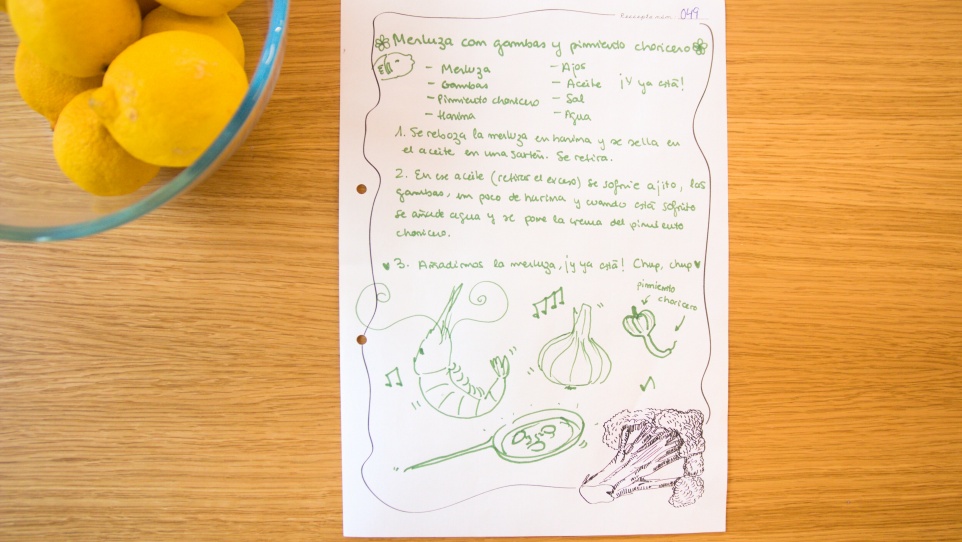 049
Merluza con gambas y pimiento choricero
- Merluza
- Gambas
- Pimiento choricero
- Harina
- Ajos
- Aceite
- Sal
- Agua
¡Y ya está!
1. Se reboza la merluza en harina y se sella en
el aceite en una sartén. Se retira.
2. En ese aceite (retirar el exceso) se sofríe ajito, las
gambas, un poco de harina y cuando está sofrito
se añade agua y se pone la crema del pimiento
choricero.
3. Añadimos la merluza, ¡y ya está! Chup, chup
pimiento
choricero